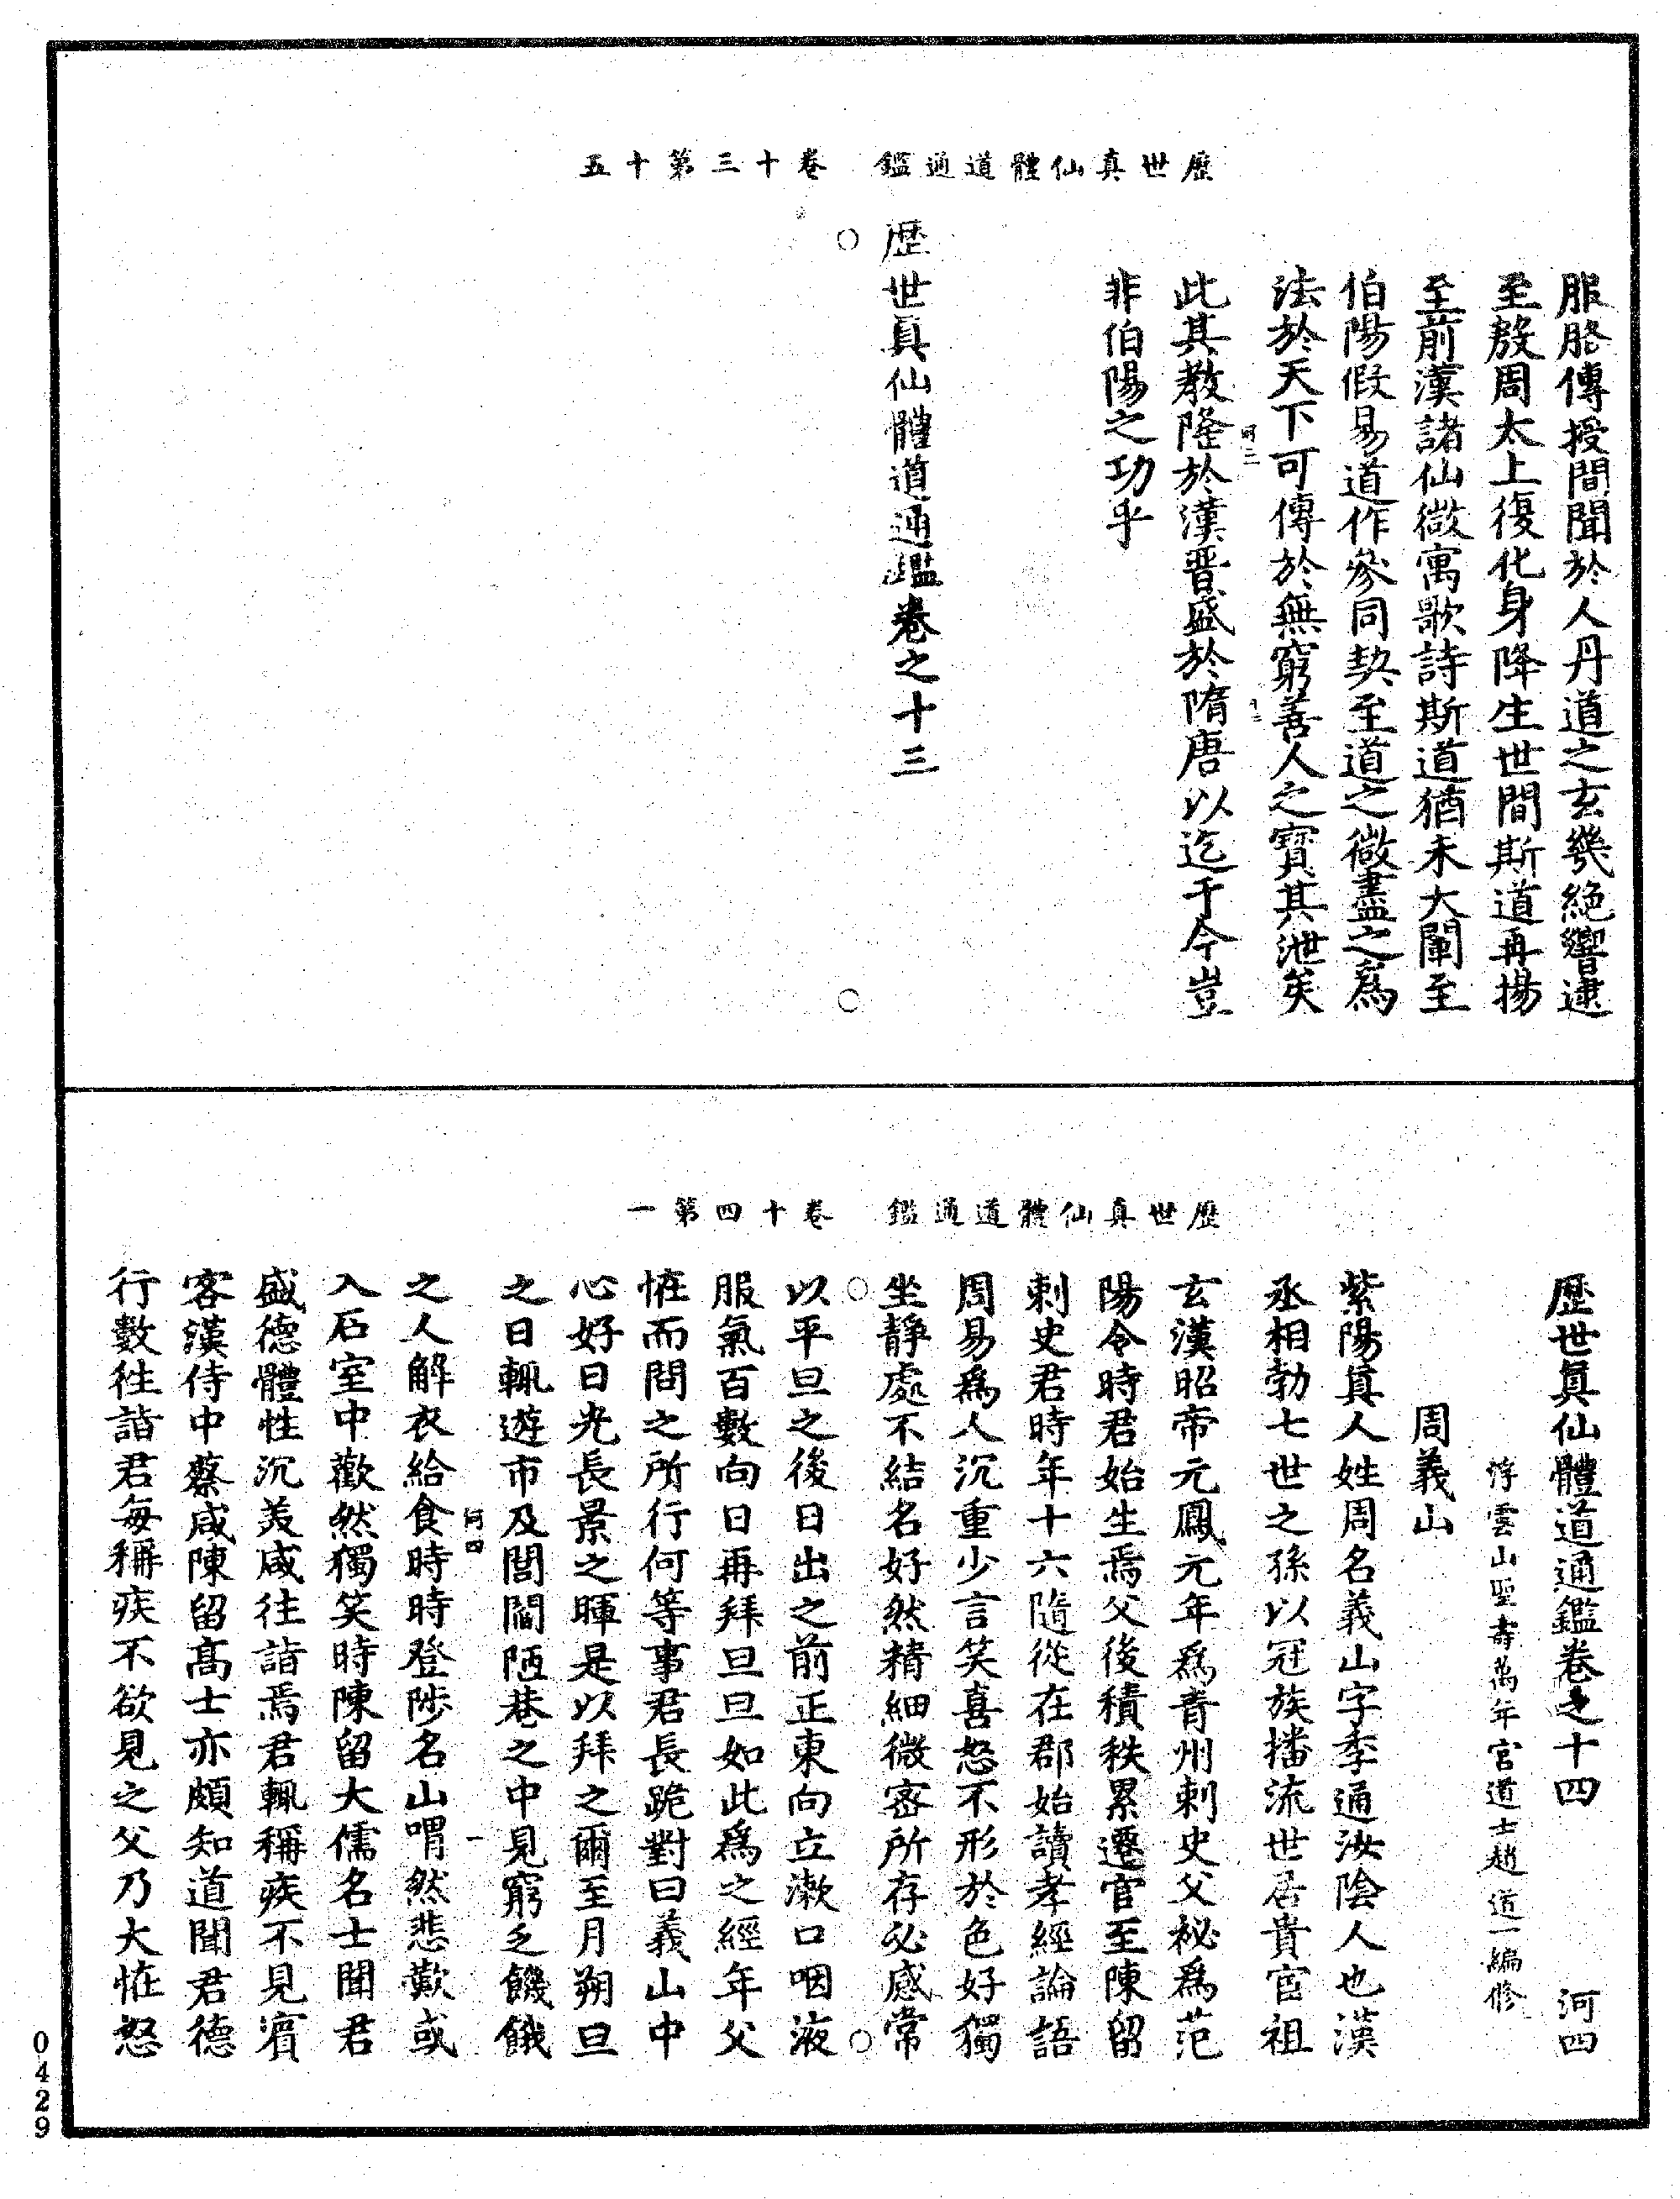 歷世真仙體道通鑑　卷十三第十五
服胳傳授間聞於人丹道之玄幾絕響逮
至殷周太上復化身降生世間斯道再揚
至前漢諸仙微寓歌詩斯道猶未大闡至
伯陽假易道作參同契至道之微盡之爲
法於天下可傳於無窮善人之寶其泄矣
河三
此其教隆於漢晋盛於隋唐以迄于今豈
非伯陽之功乎
歷世眞仙體道通鑑卷之十三
歷世真仙體道通鑑　卷十四第一
歷世眞仙體道通鑑卷之十四　河四
浮雲山聖壽萬年宮道士趙道一編修
周義山
紫陽真人姓周名義山字季通汝陰人也漢
丞相勃七世之孫以冠族播流世居貴宦祖
玄漢昭帝元鳳元年爲青州刺史父祕爲范
陽令時君始生焉父後積秩累遷官至陳留
刺史君時年十六隨從在郡始讀孝經論語
周易爲人沉重少言笑喜怒不形於色好獨
坐靜處不結名好然精細微密所存必感常
以平旦之後日出之前正東向立漱口咽液
服氣百數向日再拜旦旦如此爲之經年父
恠而問之所行何等事君長跪對曰義山中
心好日光長景之暉是以拜之爾至月朔旦
之日輒遊市及閭閻陋巷之中見窮乏饑餓
河四　一
之人解衣給食時時登陟名山喟然悲歎或
入石室中歡然獨笑時陳留大儒名士聞君
盛德體性沉美咸往詣焉君輒稱疾不見賓
客漢侍中蔡咸陳留高士亦頗知道聞君德
行數往詣君每稱疾不欲見之父乃大恠怒
0429